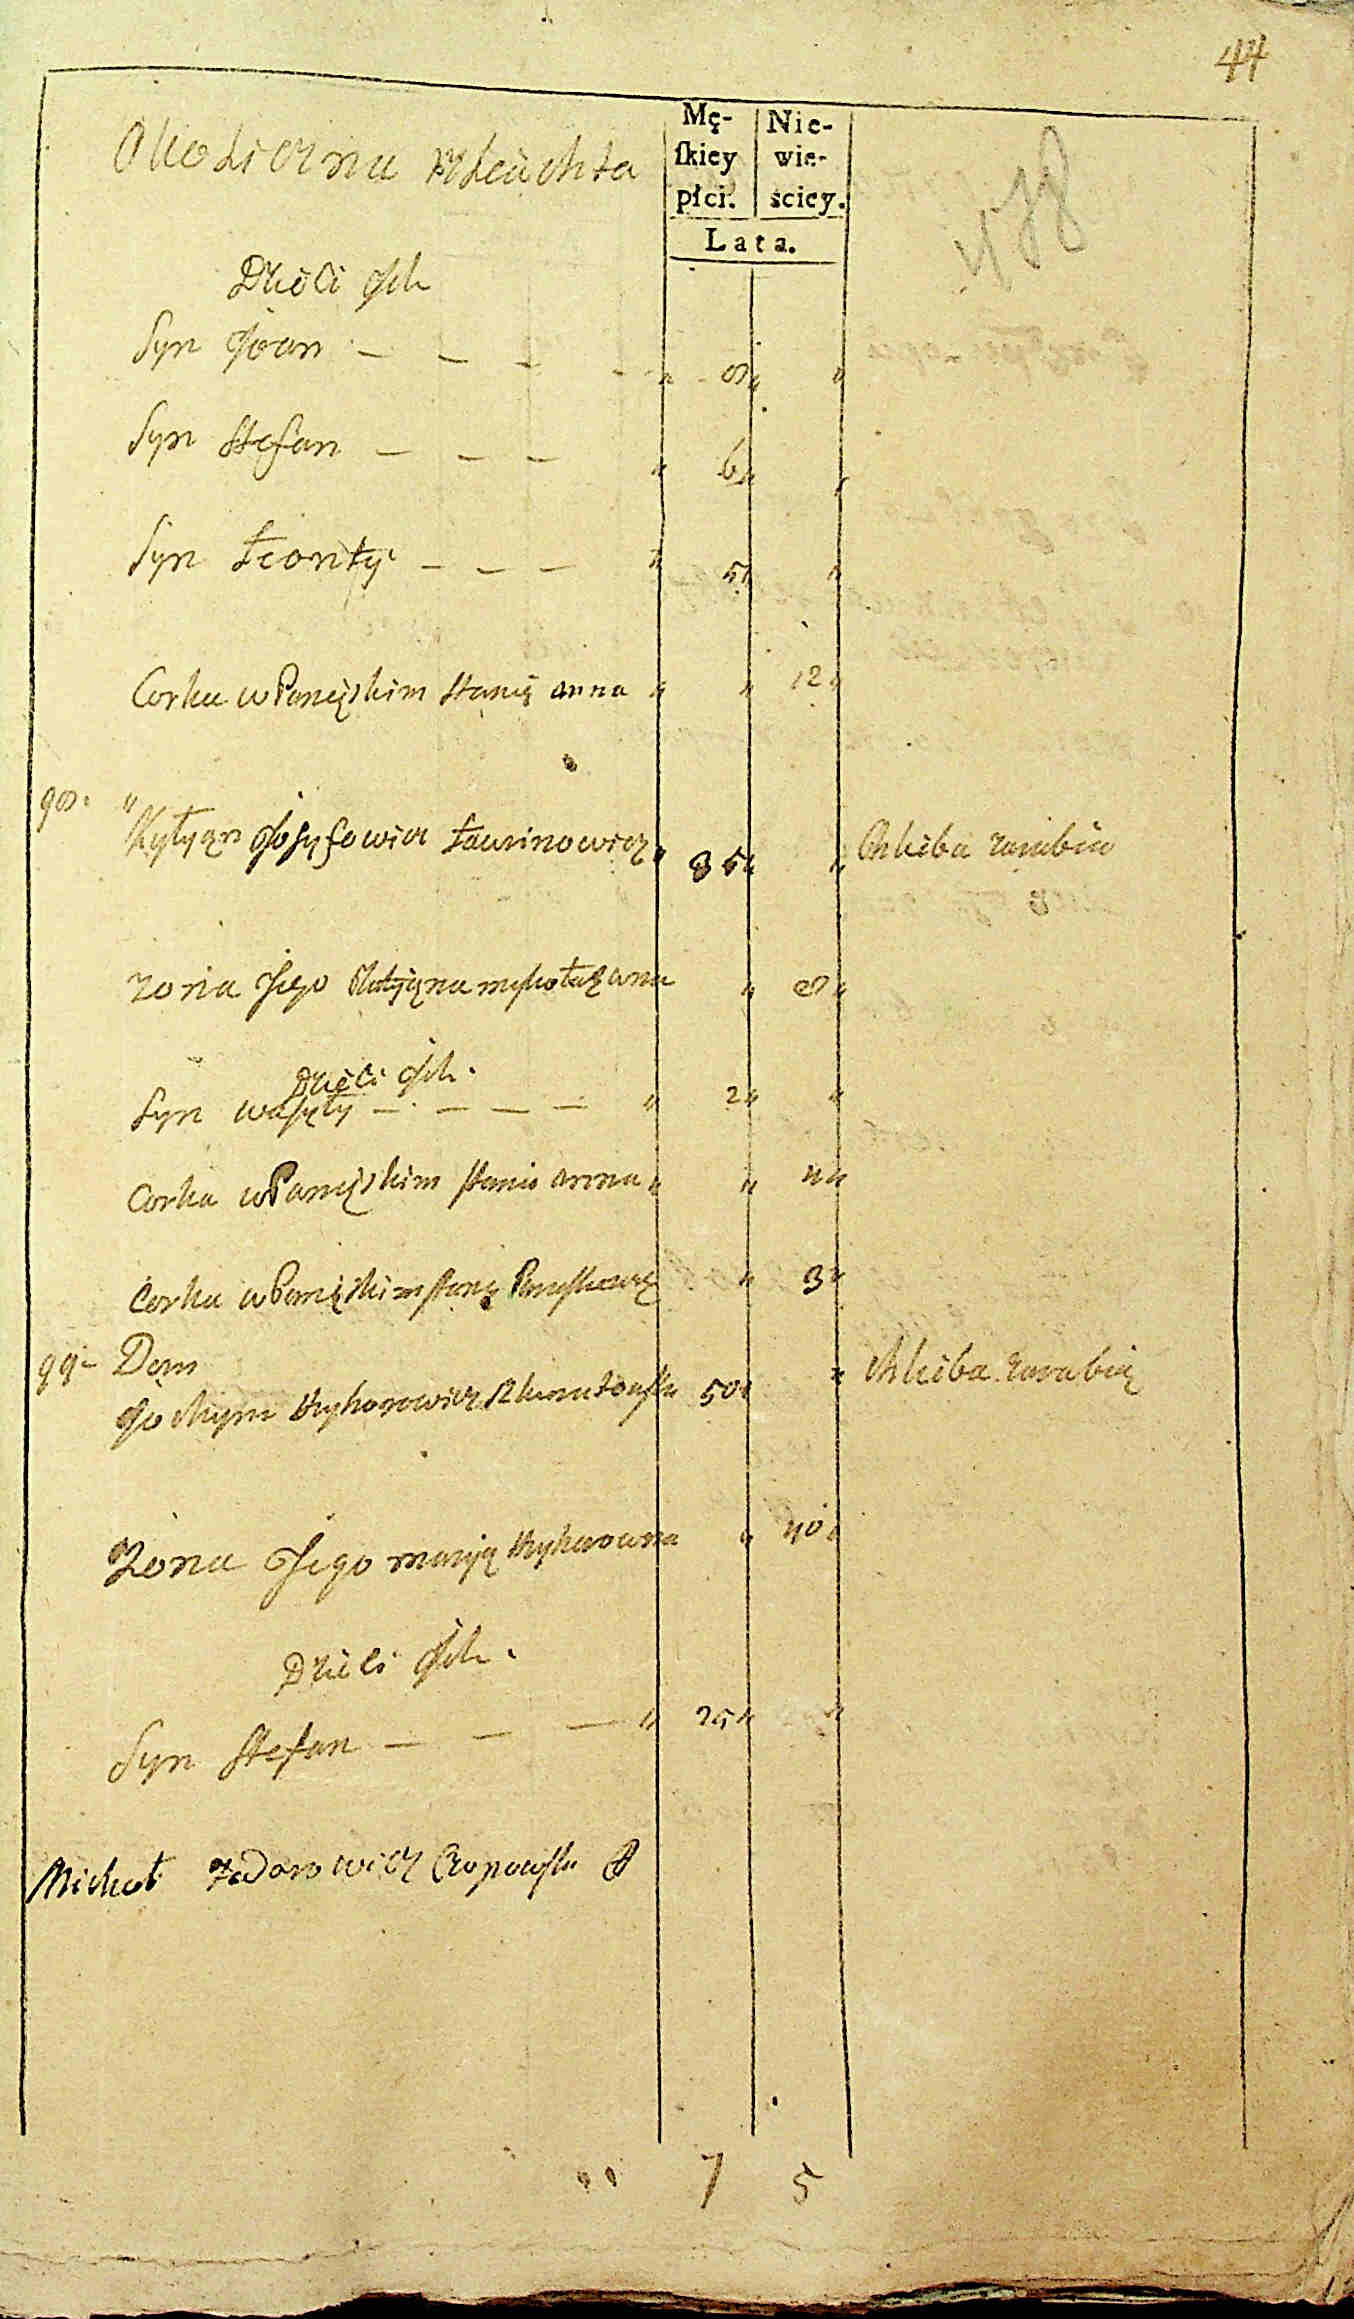 44
Okoliczna Szlachta
Mę-
skiey
płci.
Nie-
wie-
ściey.
Lata.
Dzieci Ich
Syn Jwan — — — " 8 " "
Syn Stefan — — — " 6 " "
Syn Leonty — — — " 5 " "
Corka w Panięskim Stanię anna " " 12 "
98. "
Kyłyan Josyfowicz Ławrinowicz " 35 " " Chleba zarabia
zona Jego Tatyjana mykołajewna " "
Dzieci Ich.
Syn wasyły — — — — " 2 " "
Corka w Panięskim stanie anna " " 4 "
Corka w Panięskim stanię Paraskewię " 3 "
99 - Dom
Jochym Hryhorowicz 50 " " Chleba zarabia
Zona Jego maryja Hryhorowna " 40 "
Dzieci Ich.
Syn Stefan — — — " 25 " "
Michał Fedorowicz Czopowski
" 7 5